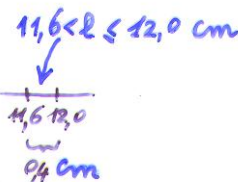 11,6 < l ≤ 12,0 cm
11,6 12,0
0,4 cm